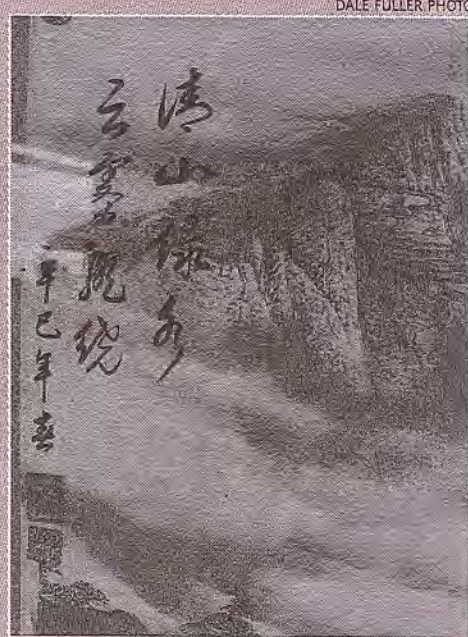 DALE FULLER PHOTO
清山绿水
云雾飘绕
辛巳年春